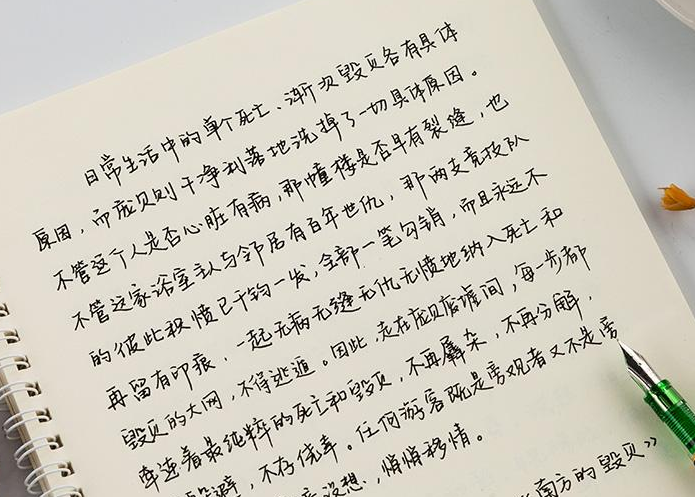 日常生活中的单个死亡、渐次毁灭各有具体
原因，而庞贝则干净利落地洗掉了一切具体原因。
不管这个人是否心脏有病，那幢楼是否早有裂缝，也
不管这家浴室主人与邻居有百年世仇，那两支竞技队
的彼此积愤已千钧一发，全部一笔勾销，而且永远不
再留有印痕，一起无病无缝无仇无愤地纳入死亡和
毁灭的大网，不得逃遁。因此，走在庞贝废墟间，每一步都
牵连着最纯粹的死亡和毁灭，不再羼杂，不再分解，
避，不存侥幸。任何游客既是旁观者又不是旁
设想，悄悄移情。
南方的毁灭》